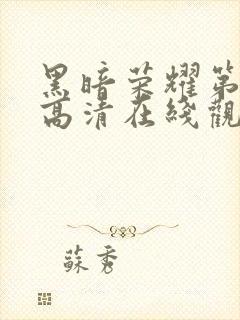 黑暗荣耀第
高清在线觀
蘇秀